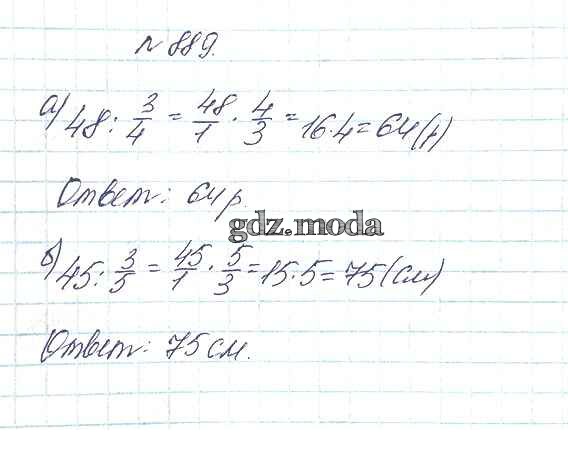 № 889.
а) 48 : 3/4 = 48/1 · 4/3 = 16·4 = 64 (р)
Ответ: 64 р.
gdz.moda
б) 45 : 3/5 = 45/1 · 5/3 = 15·5 = 75 (см)
Ответ: 75 см.